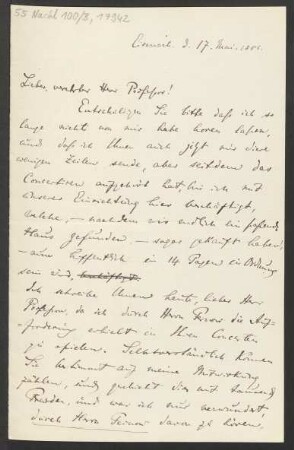 55 Nachl 100/B, 17942
d. 17. Mai.
Lieber, verehrter Herr Professor!
Entschuldigen Sie bitte daß ich so
lange nicht von mir habe hören laßen,
und daß ich Ihnen auch jetzt nur diese
wenigen Zeilen sende, aber seitdem das
Concertiren aufgehört hat bin ich mit
unserer Einrichtung hier beschäftigt,
welche, – nachdem wir endlich ein paßendes
Haus gefunden – sogar gekauft haben,
– nun hoffentlich in 14 Tagen in Ordnung
sein wird,
Ich schreibe Ihnen heute, lieber Herr
Professor, da ich durch Herrn die Auf-
forderung erhielt in Ihren Concerten
zu spielen. Selbstverständlich können
Sie bestimmt auf meine Mitwirkung
zählen, und geschieht dies mit tausend
Freuden, und war ich nur verwundert,
durch Herrn davon zu hören,